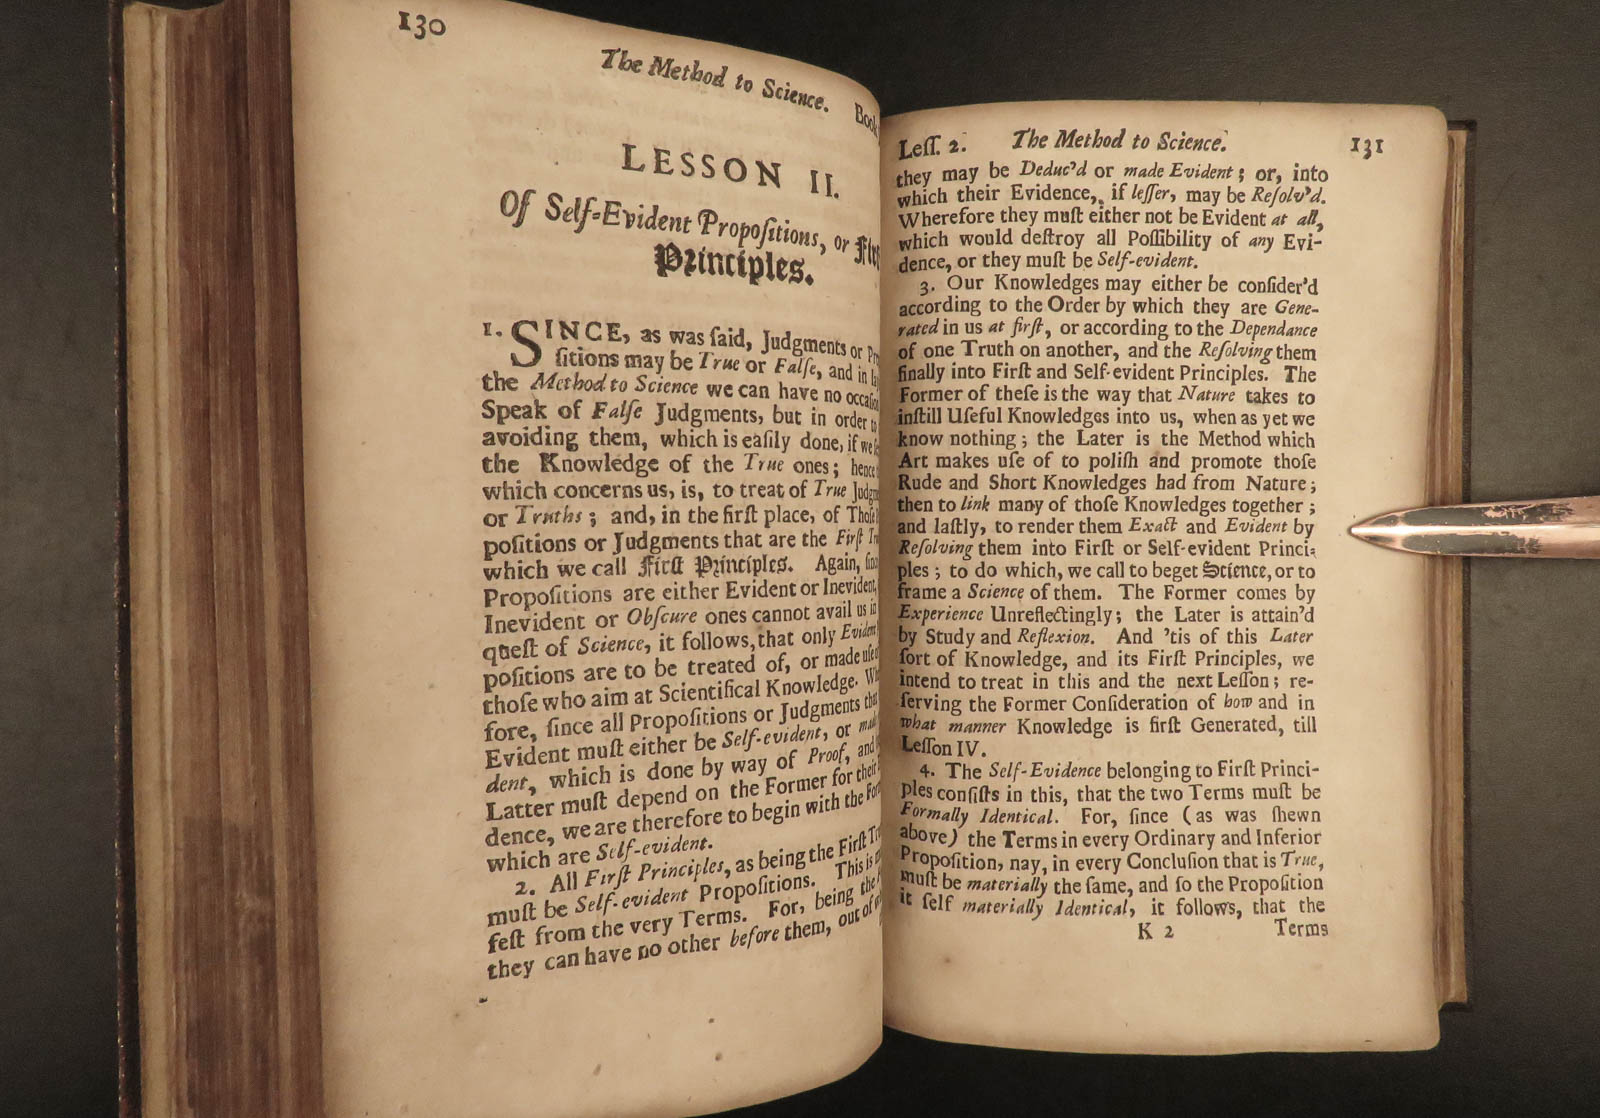 130
The Method to Science. Book
LESSON II.
Of Self-Evident Propoſitions, or
Principles.
1. SINCE, as was ſaid, Judgments or
ſitions may be True or Falſe, and in
the Method to Science we can have no
Speak of Falſe Judgments, but in order to
avoiding them, which is eaſily done, if we
the Knowledge of the True ones; hence
which concerns us, is, to treat of True
or Truths; and, in the firſt place, of
poſitions or Judgments that are the Firſt
which we call Firſt Principles. Again,
Propoſitions are either Evident or Inevident,
Inevident or Obſcure ones cannot avail us in
queſt of Science, it follows, that only
poſitions are to be treated of, or made uſe of
thoſe who aim at Scientifical Knowledge.
fore, ſince all Propoſitions or Judgments that
Evident muſt either be Self-evident, or made
dent, which is done by way of Proof, and
Latter muſt depend on the Former for their
dence, we are therefore to begin with the
which are Self-evident.
2. All Firſt Principles, as being the Firſt
muſt be Self-evident Propoſitions. This is
feſt from the very Terms. For, being the
they can have no other before them, out of
Leſſ. 2. The Method to Science. 131
they may be Deduc'd or made Evident; or, into
which their Evidence, if leſſer, may be Reſolv'd.
Wherefore they muſt either not be Evident at all,
which would deſtroy all Poſſibility of any Evi-
dence, or they muſt be Self-evident.
3. Our Knowledges may either be conſider'd
according to the Order by which they are Gene-
rated in us at firſt, or according to the Dependance
of one Truth on another, and the Reſolving them
finally into Firſt and Self-evident Principles. The
Former of theſe is the way that Nature takes to
inſtill Uſeful Knowledges into us, when as yet we
know nothing; the Later is the Method which
Art makes uſe of to poliſh and promote thoſe
Rude and Short Knowledges had from Nature;
then to link many of thoſe Knowledges together;
and laſtly, to render them Exact and Evident by
Reſolving them into Firſt or Self-evident Princi-
ples; to do which, we call to beget Science, or to
frame a Science of them. The Former comes by
Experience Unreflectingly; the Later is attain'd
by Study and Reflexion. And 'tis of this Later
ſort of Knowledge, and its Firſt Principles, we
intend to treat in this and the next Leſſon; re-
ſerving the Former Conſideration of how and in
what manner Knowledge is firſt Generated, till
Leſſon IV.
4. The Self-Evidence belonging to Firſt Princi-
ples conſiſts in this, that the two Terms muſt be
Formally Identical. For, ſince (as was ſhewn
above) the Terms in every Ordinary and Inferior
Propoſition, nay, in every Concluſion that is True,
muſt be materially the ſame, and ſo the Propoſition
it ſelf materially Identical, it follows, that the
K 2 Terms